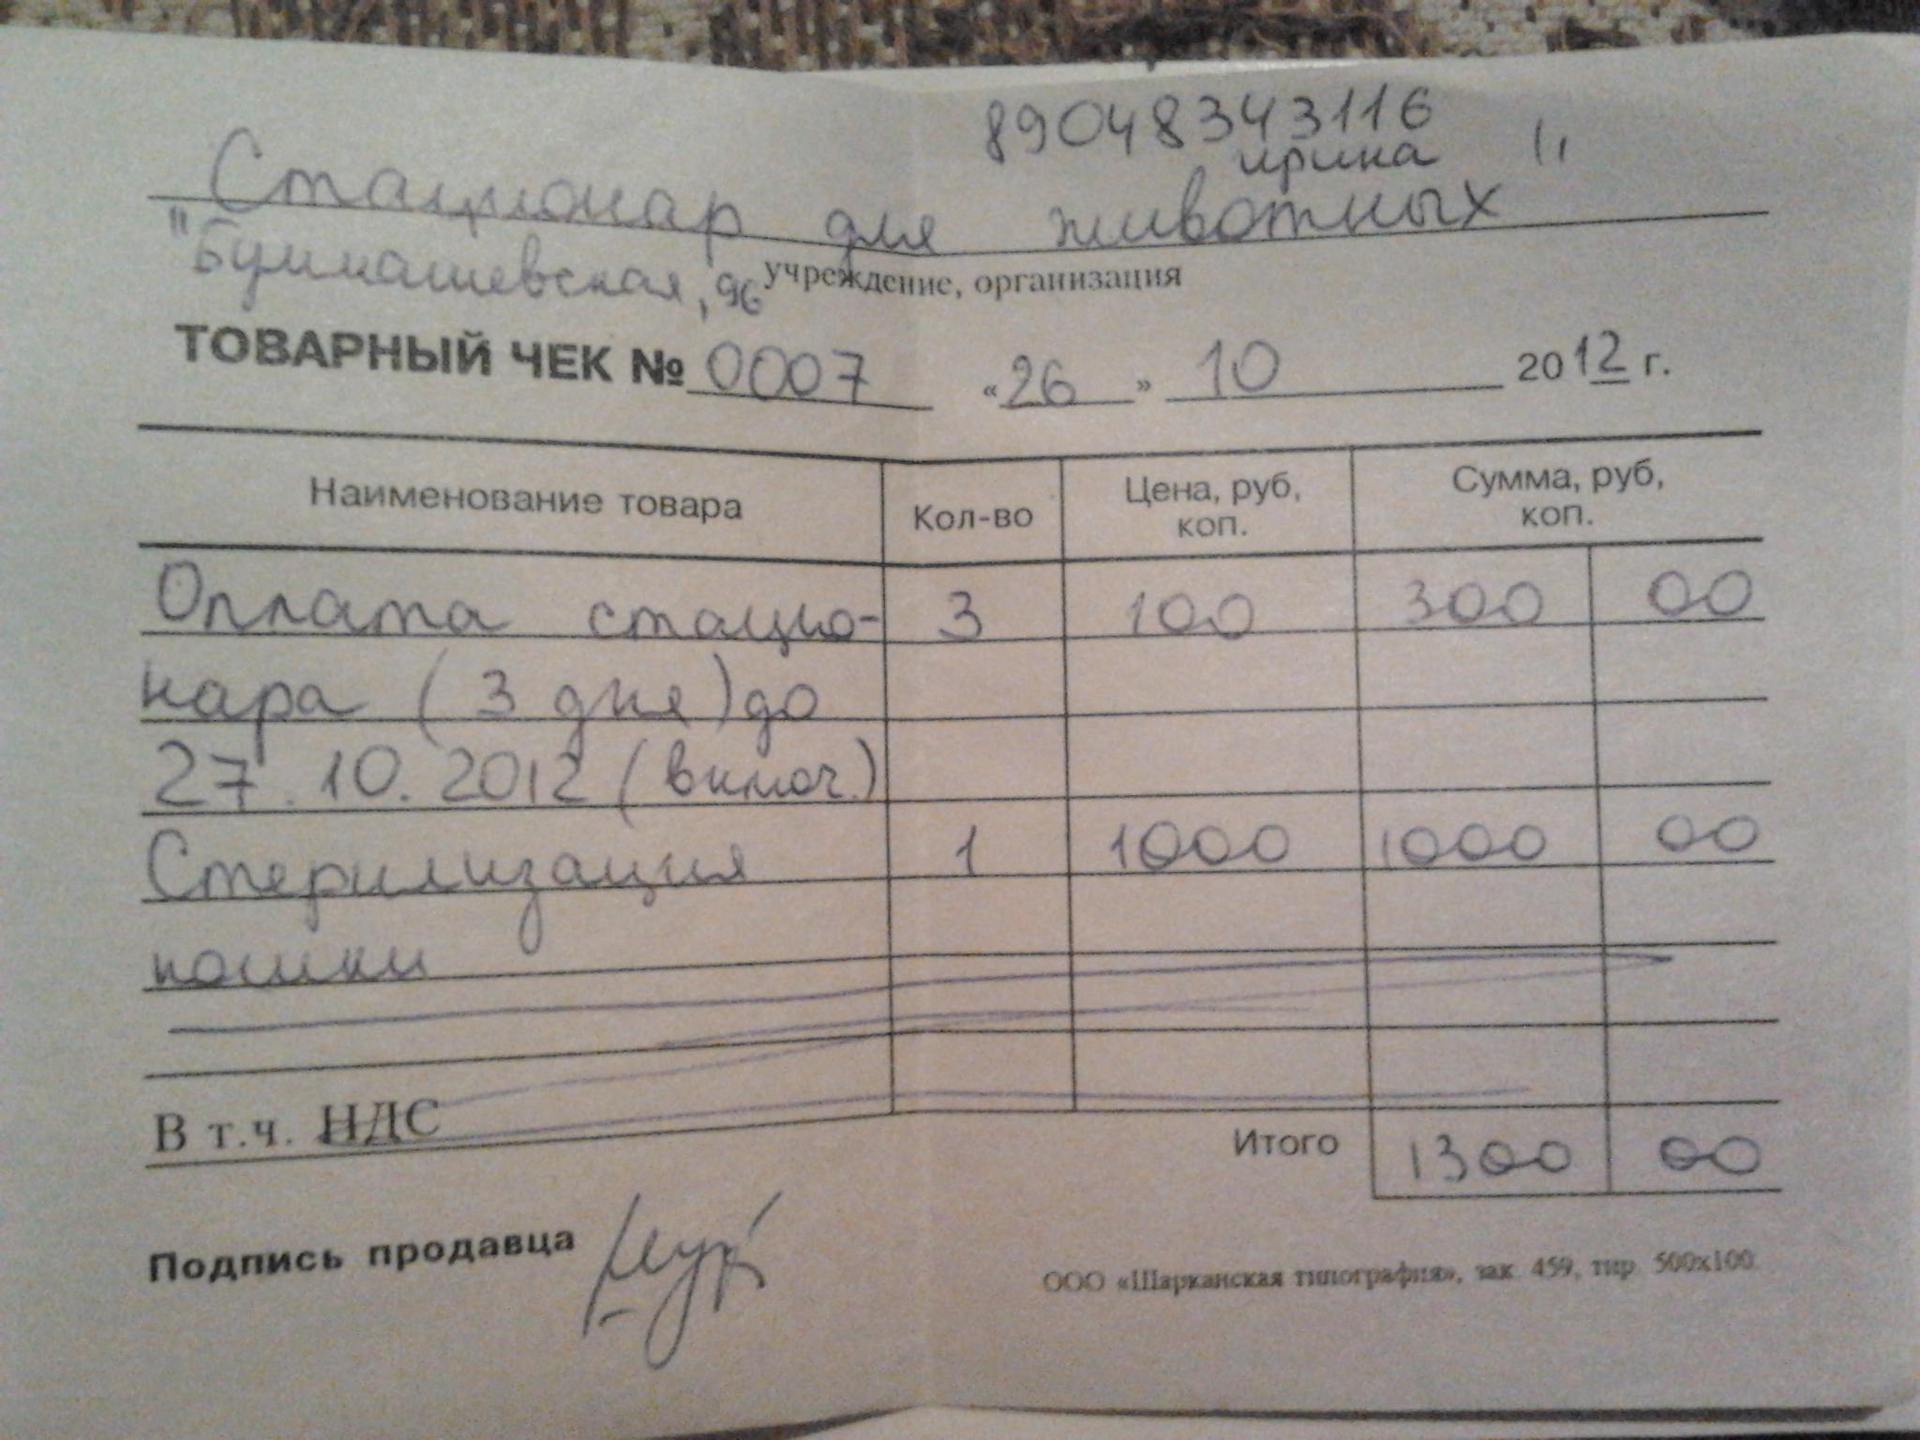 89048343116
ирина
Стационар для животных "
"Буммашевская, 96
учреждение, организация
ТОВАРНЫЙ ЧЕК № 0007 «26» 10 2012 г.
Наименование товара Кол-во Цена, руб, коп. Сумма, руб, коп.
Оплата стацио- 3 100 300 00
нара (3 дня) до
27.10.2012 (включ.)
Стерилизация 1 1000 1000 00
кошки
В т.ч. НДС
Итого 1300 00
Подпись продавца
ООО «Шарканская типография», зак. 459, тир. 500х100